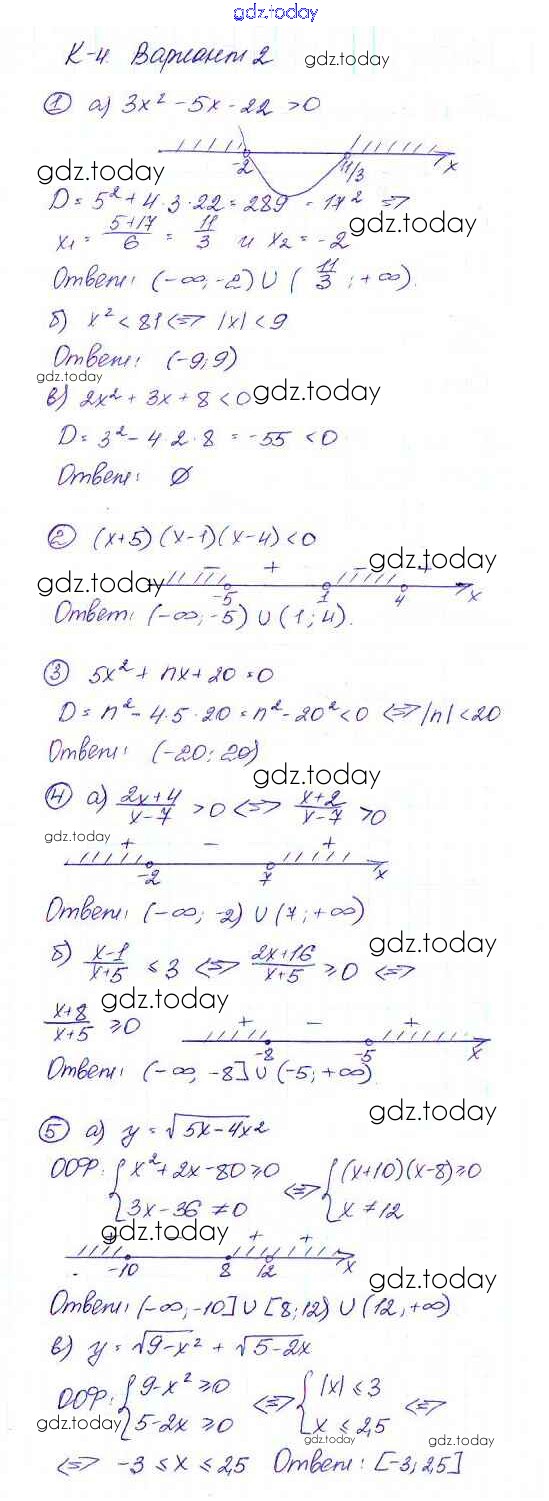 gdz.today
К-4. Вариант 2 gdz.today
① а) 3x² - 5x - 22 > 0
-2 11/3 x
gdz.today
D = 5² + 4·3·22 = 289 = 17² ⇒
gdz.today
x₁ = (5+17)/6 = 11/3 и x₂ = -2
Ответ: (-∞; -2) ∪ (11/3; +∞).
б) x² < 81 ⇔ |x| < 9
Ответ: (-9; 9)
gdz.today
в) 2x² + 3x + 8 < 0 gdz.today
D = 3² - 4·2·8 = -55 < 0
Ответ: ∅
② (x+5)(x-1)(x-4) < 0
gdz.today
- + - +
gdz.today -5 1 4 x
Ответ: (-∞; -5) ∪ (1; 4).
③ 5x² + nx + 20 = 0
D = n² - 4·5·20 = n² - 20² < 0 ⇔ |n| < 20
Ответ: (-20; 20)
gdz.today
④ а) (2x+4)/(x-7) > 0 ⇔ (x+2)/(x-7) > 0
gdz.today
+ - +
-2 7 x
Ответ: (-∞; -2) ∪ (7; +∞)
gdz.today
б) (x-1)/(x+5) ≤ 3 ⇔ (2x+16)/(x+5) ≥ 0 ⇔
gdz.today
(x+8)/(x+5) ≥ 0
+ - +
-8 -5 x
Ответ: (-∞, -8] ∪ (-5; +∞)
gdz.today
⑤ а) y = √(5x-4x2
ООФ: { x² + 2x - 80 ≥ 0 ⇔ { (x+10)(x-8) ≥ 0
3x - 36 ≠ 0 x ≠ 12
gdz.today
+ - + +
-10 8 12 x
gdz.today
Ответ: (-∞, -10] ∪ [8; 12) ∪ (12, +∞)
в) y = √(9-x²) + √(5-2x)
gdz.today
ООФ: { 9 - x² ≥ 0 ⇔ { |x| ≤ 3 ⇔
5 - 2x ≥ 0 x ≤ 2,5
gdz.today
gdz.today gdz.today
⇔ -3 ≤ x ≤ 2,5 Ответ: [-3; 2,5]